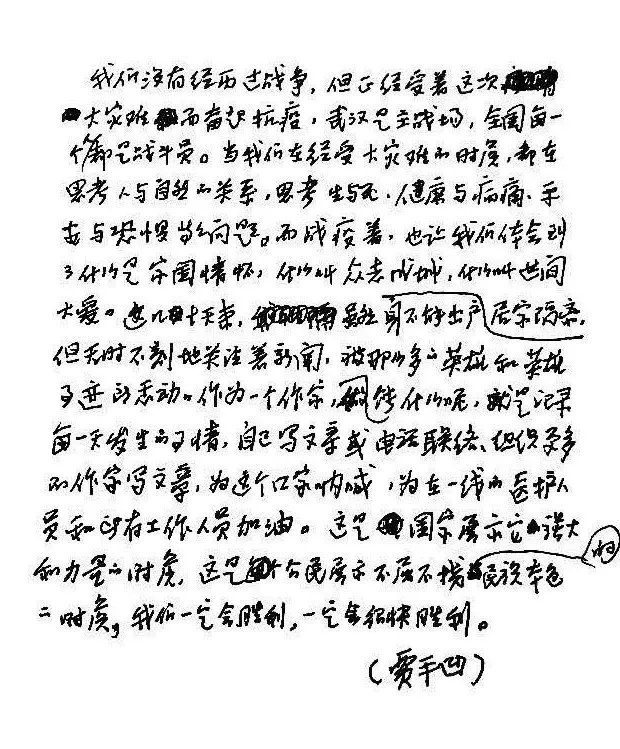 我们没有经历过战争，但正经受着这次
大灾难而奋起抗疫，武汉是主战场，全国每一
个都是战斗员。当我们在经受大灾难的时候，都在
思考人与自然的关系，思考生与死、健康与病痛、平
安与恐惧等等问题。而战疫着，也让我们体会到
了什么是家国情怀，什么叫众志成城，什么叫世间
大爱。这几十天来，虽然身不能出户居家隔离，
但无时不刻地关注着新闻，被那么多的英雄和英雄
事迹所感动。作为一个作家，能什么呢，就是记录
每一天发生的事情，自己写文章或电话联络、组织更多
的作家写文章，为这个国家呐喊，为在一线的医护人
员和所有工作人员加油。这是国家展示它的强大
和力量的时候，这是每个公民展示不屈不挠的民族本色
的时候，我们一定会胜利，一定会很快胜利。
（贾平凹）